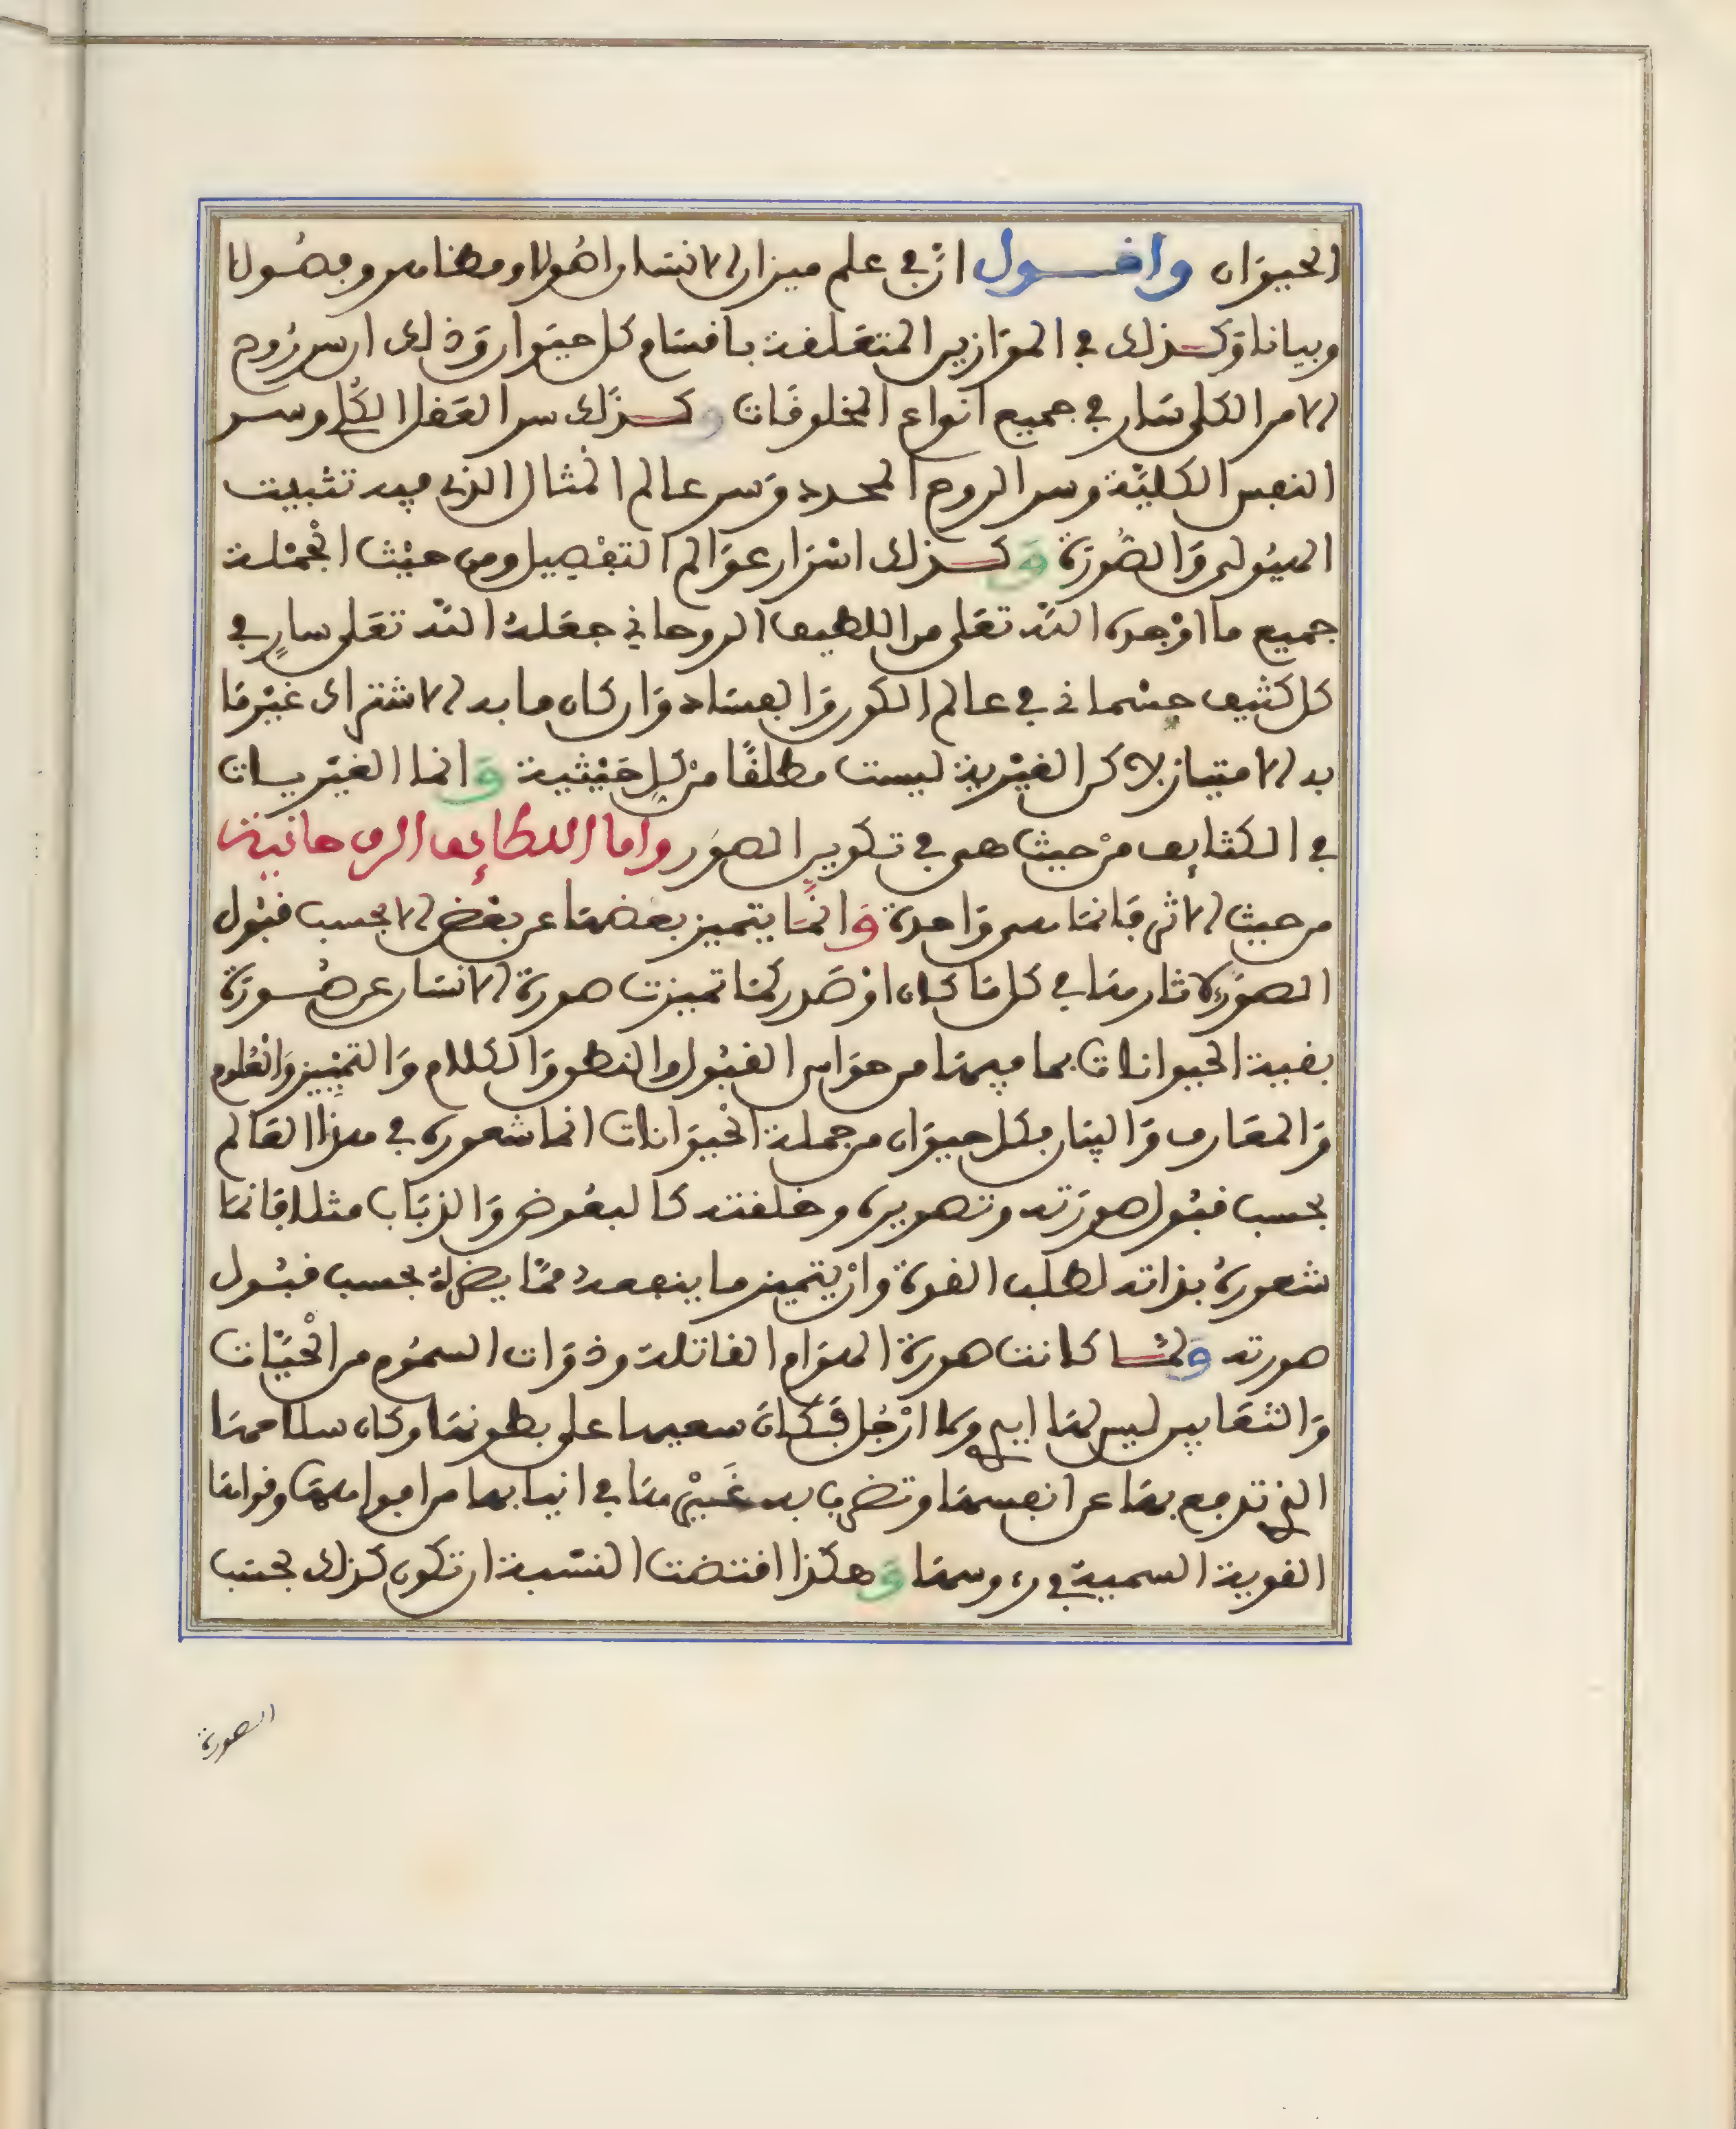 الحيوان وافول ان في علم ميزان الانسان اصولا ومضامين وفصولا
وبيانا وكذلك في الموازين المتعلقة باقسام كل حيوان وذلك ان سر روح
الامر الكلي سار في جميع انواع المخلوقات وكذلك سر العقل الكلي وسر
النفس الكلية وسر الروح المجرد وسر عالم المثال الذي فيه تثبيت
الهيولى والصورة وكذلك اسرار عوالم التفصيل ومن حيث الجملة
جميع ما اوجده الله تعلى من اللطيف الروحاني جعله الله تعلى سار في
كل كثيف جسماني في عالم الكون والفساد وان كان ما به الاشتراك غير ما
به الامتياز لاكن الغيرية ليست مطلقا من كل حيثية وانما الغيريات
في الكثايف من حيث هي في تكوين الصور واما اللطايف الروحانية
من حيث الاثر فانها هي واحدة وانما يتميز بعضها عن بعض الا بحسب قبول
الصور لاثارها في كل ما كان او صدر كما تميزت صورة الانسان عن صورة
بقية الحيوانات بما فيها من حواس القبول والنطق والكلام والتمييز والعلوم
والمعارف والبيان فكل حيوان من جملة الحيوانات انما شعوره في هذا العالم
بحسب قبول صورته وتصويره وخلقته كالبعوض والذباب مثلا فانما
شعوره بذاته لطلب القوة وان يتميز ما ينفعه مما يضره بحسب قبول
صورته ولما كانت صورة الهوام القاتلة وذوات السموم من الحيات
والثعابين ليس لها ايدي ولا ارجل فكان سعيها على بطونها وكان سلاحها
التي تدفع بها عن انفسها وتضرب به غيرها في انيابها من افواهها وقواها
القوية السمية في رءوسها وهكذا اقتضت النسبة ان تكون كذلك بحسب
الصورة